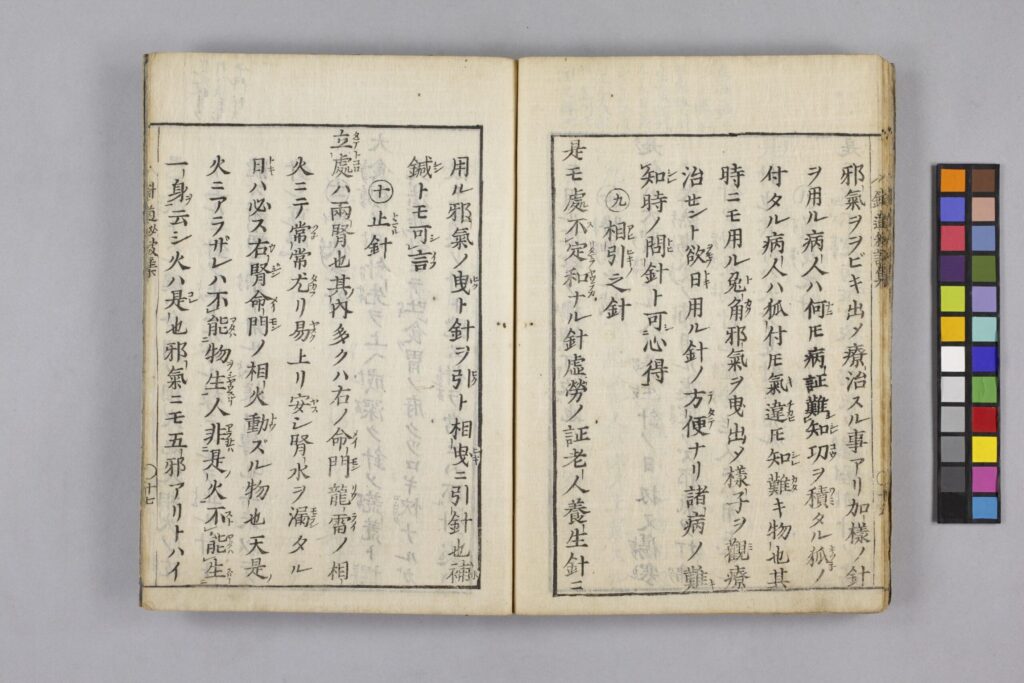 邪氣ヲヲビキ出〆療治スル事アリ加樣ノ針
ヲ用ル病人ハ何𪜈病証難知功ヲ積タル狐ノ
付タル病人ハ狐付𪜈氣違𪜈知難キ物也其
時ニモ用ル兔角邪氣ヲ曳出〆樣子ヲ觀療
治セント欲日用ル針ノ方便ナリ諸病ノ難
知時ノ問針ト可心得
㊈相引之針
是モ處不定和ナル針虛勞ノ証老人養生針ニ
用ル邪氣ノ曳ト針ヲ引ト相曳ニ引針也補
鍼トモ可言
㊉止針
立處ハ兩腎也其內多クハ右ノ命門龍雷ノ相
火ニテ常常尤リ易上リ安シ腎水ヲ漏タル
日ハ必ス右腎命門ノ相火動ズル物也天是
火ニアラザレハ不能物生人非是火不能生
一身云シ火ハ是也邪氣ニモ五邪アリトハイ